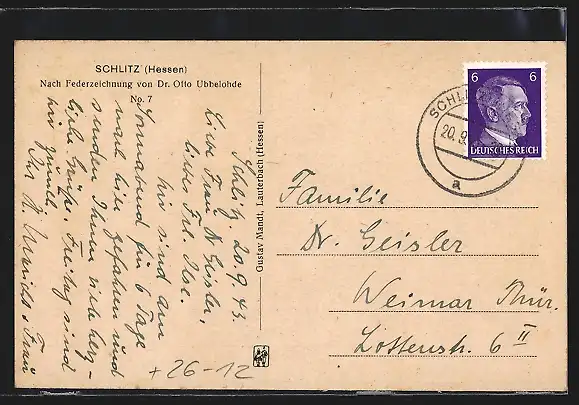 SCHLITZ (Hessen)
Nach Federzeichnung von Dr. Otto Ubbelohde
No. 7
Schlitz, 20.9.43.
Liebe Frau Dr. Geisler,
liebe Frl. Ilse.
Wir sind am
Sonnabend für 6 Tage
nach hier gefahren und
senden Ihnen viele herz-
liche Grüße. Freitag sind
wir zurück.
Ihr u. Frau
+26-12
Gustav Mandt, Lauterbach (Hessen)
SCHLI
20.9.
a
6 6
DEUTSCHES REICH
Familie
Dr. Geisler
Weimar Thür.
Lottenstr. 6 II